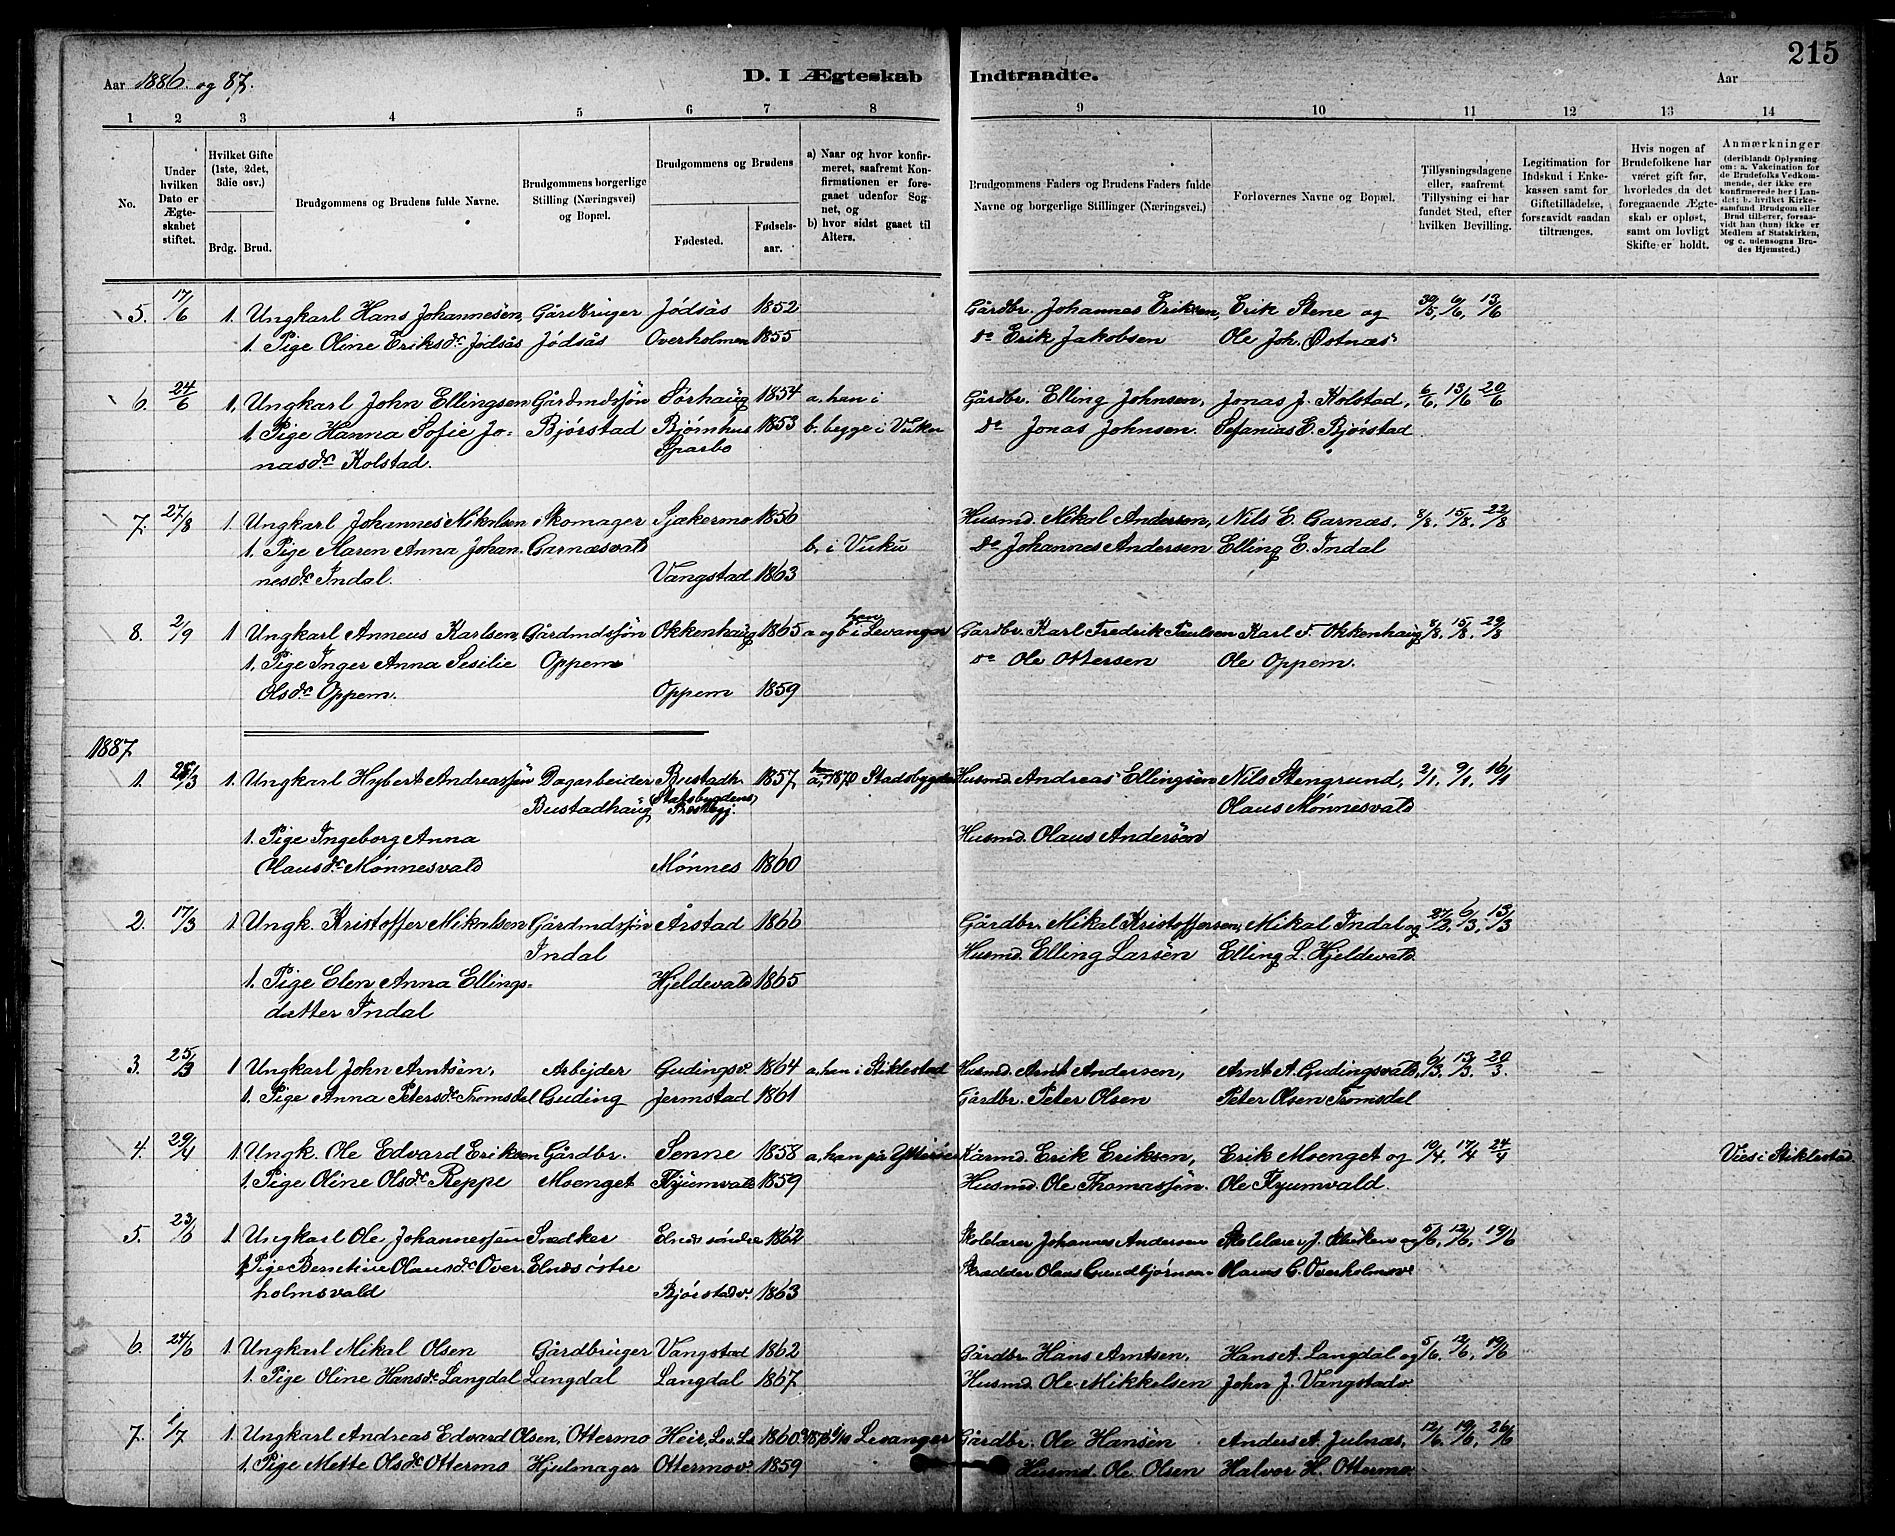 215
Aar 1886 og 87.
D. I Ægteskab Indtraadte.
Aar
1 2 3 4 5 6 7 8 9 10 11 12 13 14
No.
Under hvilken Dato er Ægteskabet stiftet.
Hvilket Gifte (1ste, 2det, 3die osv.)
Brdg. Brud.
Brudgommens og Brudens fulde Navne.
Brudgommens borgerlige Stilling (Næringsvei) og Bopæl.
Brudgommens og Brudens
Fødested.
Fødselsaar.
a) Naar og hvor konfirmeret, saafremt Konfirmationen er foregaaet udenfor Sognet, og
b) hvor sidst gaaet til Alters.
Brudgommens Faders og Brudens Faders fulde Navne og borgerlige Stillinger (Næringsvei.)
Forlovernes Navne og Bopæl.
Tillysningsdagene eller, saafremt Tillysning ei har fundet Sted, efter hvilken Bevilling.
Legitimation for Indskud i Enkekassen samt for Giftetilladelse, forsaavidt saadan tiltrænges.
Hvis nogen af Brudefolkene har været gift før, hvorledes da det foregaaende Ægteskab er opløst, samt om lovligt Skifte er holdt.
Anmærkninger
(deriblandt Oplysning om: a. Vakcination for de Brudefolks Vedkommende, der ikke ere konfirmerede her i Landet; b. hvilket Kirkesamfund Brudgom eller Brud tilhører, forsaavidt han (hun) ikke er Medlem af Statskirken, og c. udensogns Brudes Hjemsted.)
5. 17/6 1. Ungkarl Hans Johannesen, Gårdbruger Jødsås 1852 Gårdbr. Johannes Eriksen, Erik Stene og 30/5, 6/6, 13/6
1. Pige Oline Eriksdr Jødsås Jødsås Overholmen 1855 do Erik Jakobsen Ole Joh. Østnæs
6. 24/6 1. Ungkarl John Ellingsen Gårdmdssøn Sørhaug 1854 a, han i Gårdbr. Elling Johnsen, Jonas J. Kolstad, 6/6, 13/6 20/6
1. Pige Hanna Sofie Jo- Bjørstad Bjørnhus 1853 b. begge i Vuku do Jonas Johnsen. Sefanias E. Bjørstad
nasdr Kolstad. Sparbo
7. 27/8 1. Ungkarl Johannes Mikalsen Skomager Sjækermo 1856 Husmd. Mikal Andersen, Nils E. Garnæs, 8/8, 15/8, 22/8
1. Pige Maren Anna Johan- Garnæsvald b, i Vuku Do Johannes Andersen Elling E. Indal
nesdr Indal. Vangstad 1863
8. 2/9 1 Ungkarl Anneus Karlsen, Gårdmdssøn Okkenhaug 1865 a og b i Levanger Gårdbr. Karl Fredrik Paulsen Karl F. Okkenhaug 8/8, 15/8, 29/8
1. Pige Inger Anna Sesilie Oppem do Ole Ottersen Ole Oppem.
Olsdr Oppem. Oppem 1859
1887
1. 25/3 1. Ungkarl Hybert Andreassøn Dagarbeider Bustadh. 1857 a, 1870 Stadsbygden Husmd. Andreas Ellingsen Nils Stengrund, 2/1, 9/1, 16/1
Bustadhaug Statsbygdens Præstegj. Olaus Mønnesvald
1. Pige Ingeborg Anna Husmd. Olaus Andersen
Olausdr Mønnesvald Mønnes 1860
2. 17/3 1. Ungk. Kristoffer Mikalsen Gårdmdssøn Årstad 1866 Gårdbr. Mikal Kristoffersen, Mikal Indal og 27/2, 6/3, 13/3
Indal Husmd. Elling Larsen Elling L. Hjeldevald
1. Pige Elen Anna Ellings- Hjeldevald 1865
datter Indal
3. 25/3 1 Ungkarl John Arntsen, Arbejder Gudingsv. 1864 a, han i Stiklestad Husmd. Arnt Andersen, Arnt A. Gudingsvald, 6/3, 13/3, 20/3
1. Pige Anna Petersdr Tromsdal Guding Jermstad 1861 Gårdbr. Peter Olsen Peter Olsen Tromsdal
4. 29/4 1. Ungk. Ole Edvard Eriksen Gårdbr. Senne 1858 a, han på Ytterøen Kårmd. Erik Eriksen, Erik Moenget og 10/4, 17/4 24/4 Viet i Stiklestad.
1. Pige Oline Olsdr Reppe Moenget Flyumvald 1859 Husmd. Ole Thomassøn. Ole Flyumvald.
5. 23/6 1. Ungkarl Ole Johannessen Snedker Elnes søndre 1862 Skolelærer Johannes Andersen Skolelærer J. og 5/6, 12/6, 19/6
1. Pige Berntine Olausdr Over- Elnes østre Skrædder Olaus Gundbjørnsen Olaus G. Overholmsv
holmsvald Bjørstadv. 1863
6. 24/6 1. Ungkarl Mikal Olsen Gårdbruger Vangstad 1862 Gårdbr. Hans Arntsen, Hans A. Langdal og 5/6, 12/6, 19/6
1. Pige Oline Hansdr Langdal Langdal Langdal 1867 Husmd. Ole Mikkelsen John J. Vangstadv
7. 1/7 1. Ungkarl Andreas Edvard Olsen, Ottermo Heir, Lev. 1860 1876 Levanger Gårdbr. Ole Hansen Anders A. Julnæs, 12/6, 19/6, 26/6
1. Pige Mette Olsdr Ottermo Hjulmager Ottermov. 1859 Husmd. Ole Olsen Halvor H. Ottermo